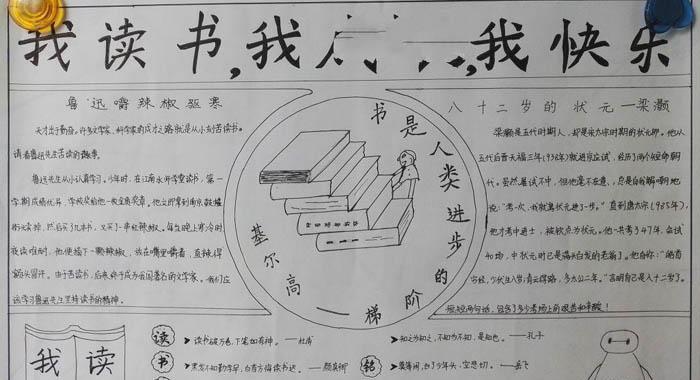 我读书,我成长,我快乐
鲁迅嚼辣椒驱寒
天才出于勤奋。许多文学家、科学家的成才之路就是从小刻苦读书。
请看鲁迅先生苦读的趣事。
鲁迅先生从小认真学习。少年时,在江南水师学堂读书,第一
学期成绩优异,学校奖给他一枚金质奖章。他立即拿到南京鼓楼
街头卖掉,然后买了几本书,又买了一串红辣椒。每当晚上寒冷时
夜读难耐,他便摘下一颗辣椒,放在嘴里嚼着,直辣得
额头冒汗。由于苦读书,后来终于成为我国著名的文学家。我们应
该学习鲁迅先生坚持读书的精神。
书是人类进步的阶梯
一高尔基
八十二岁的状元—梁灏
梁灏是五代时期人,却是宋力宗时期的状元郎。他从
五代后晋天福三年(938年)就进京应试,经历了两个短命朝
代。虽然屡试不中,但他毫不在意,总是自我解嘲地
说:"考一次,我就离状元近了一步。"直到
(985年),
他才考中进士,被钦点为状元。他一共考了47年,会试
40场,中状元时已是满头白发的老翁了。他自称:"皓首
穷经,少伏生八岁;青云得路,多太公二年。"言明自己是八十二岁了。
短短两句话,包含了多少考场上的艰苦和辛酸!
我读
读 读书破万卷,下笔如有神。——杜甫
书 黑发不知勤学早,白首方悔读书迟。——颜真卿
知之为知之,不知为不知,是知也。——孔子
铭 莫等闲,白了少年头,空悲切。——岳飞